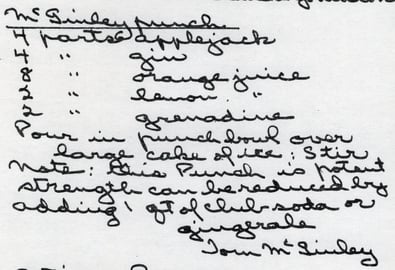 McGinley punch
4 parts applejack
4 " gin
8 " orange juice
2 " lemon "
2 " grenadine
Pour in punch bowl over
large cake of ice; Stir
Note: this Punch is potent
strength can be reduced by
adding 1 qt of club-soda or
gingerale
Tom McGinley